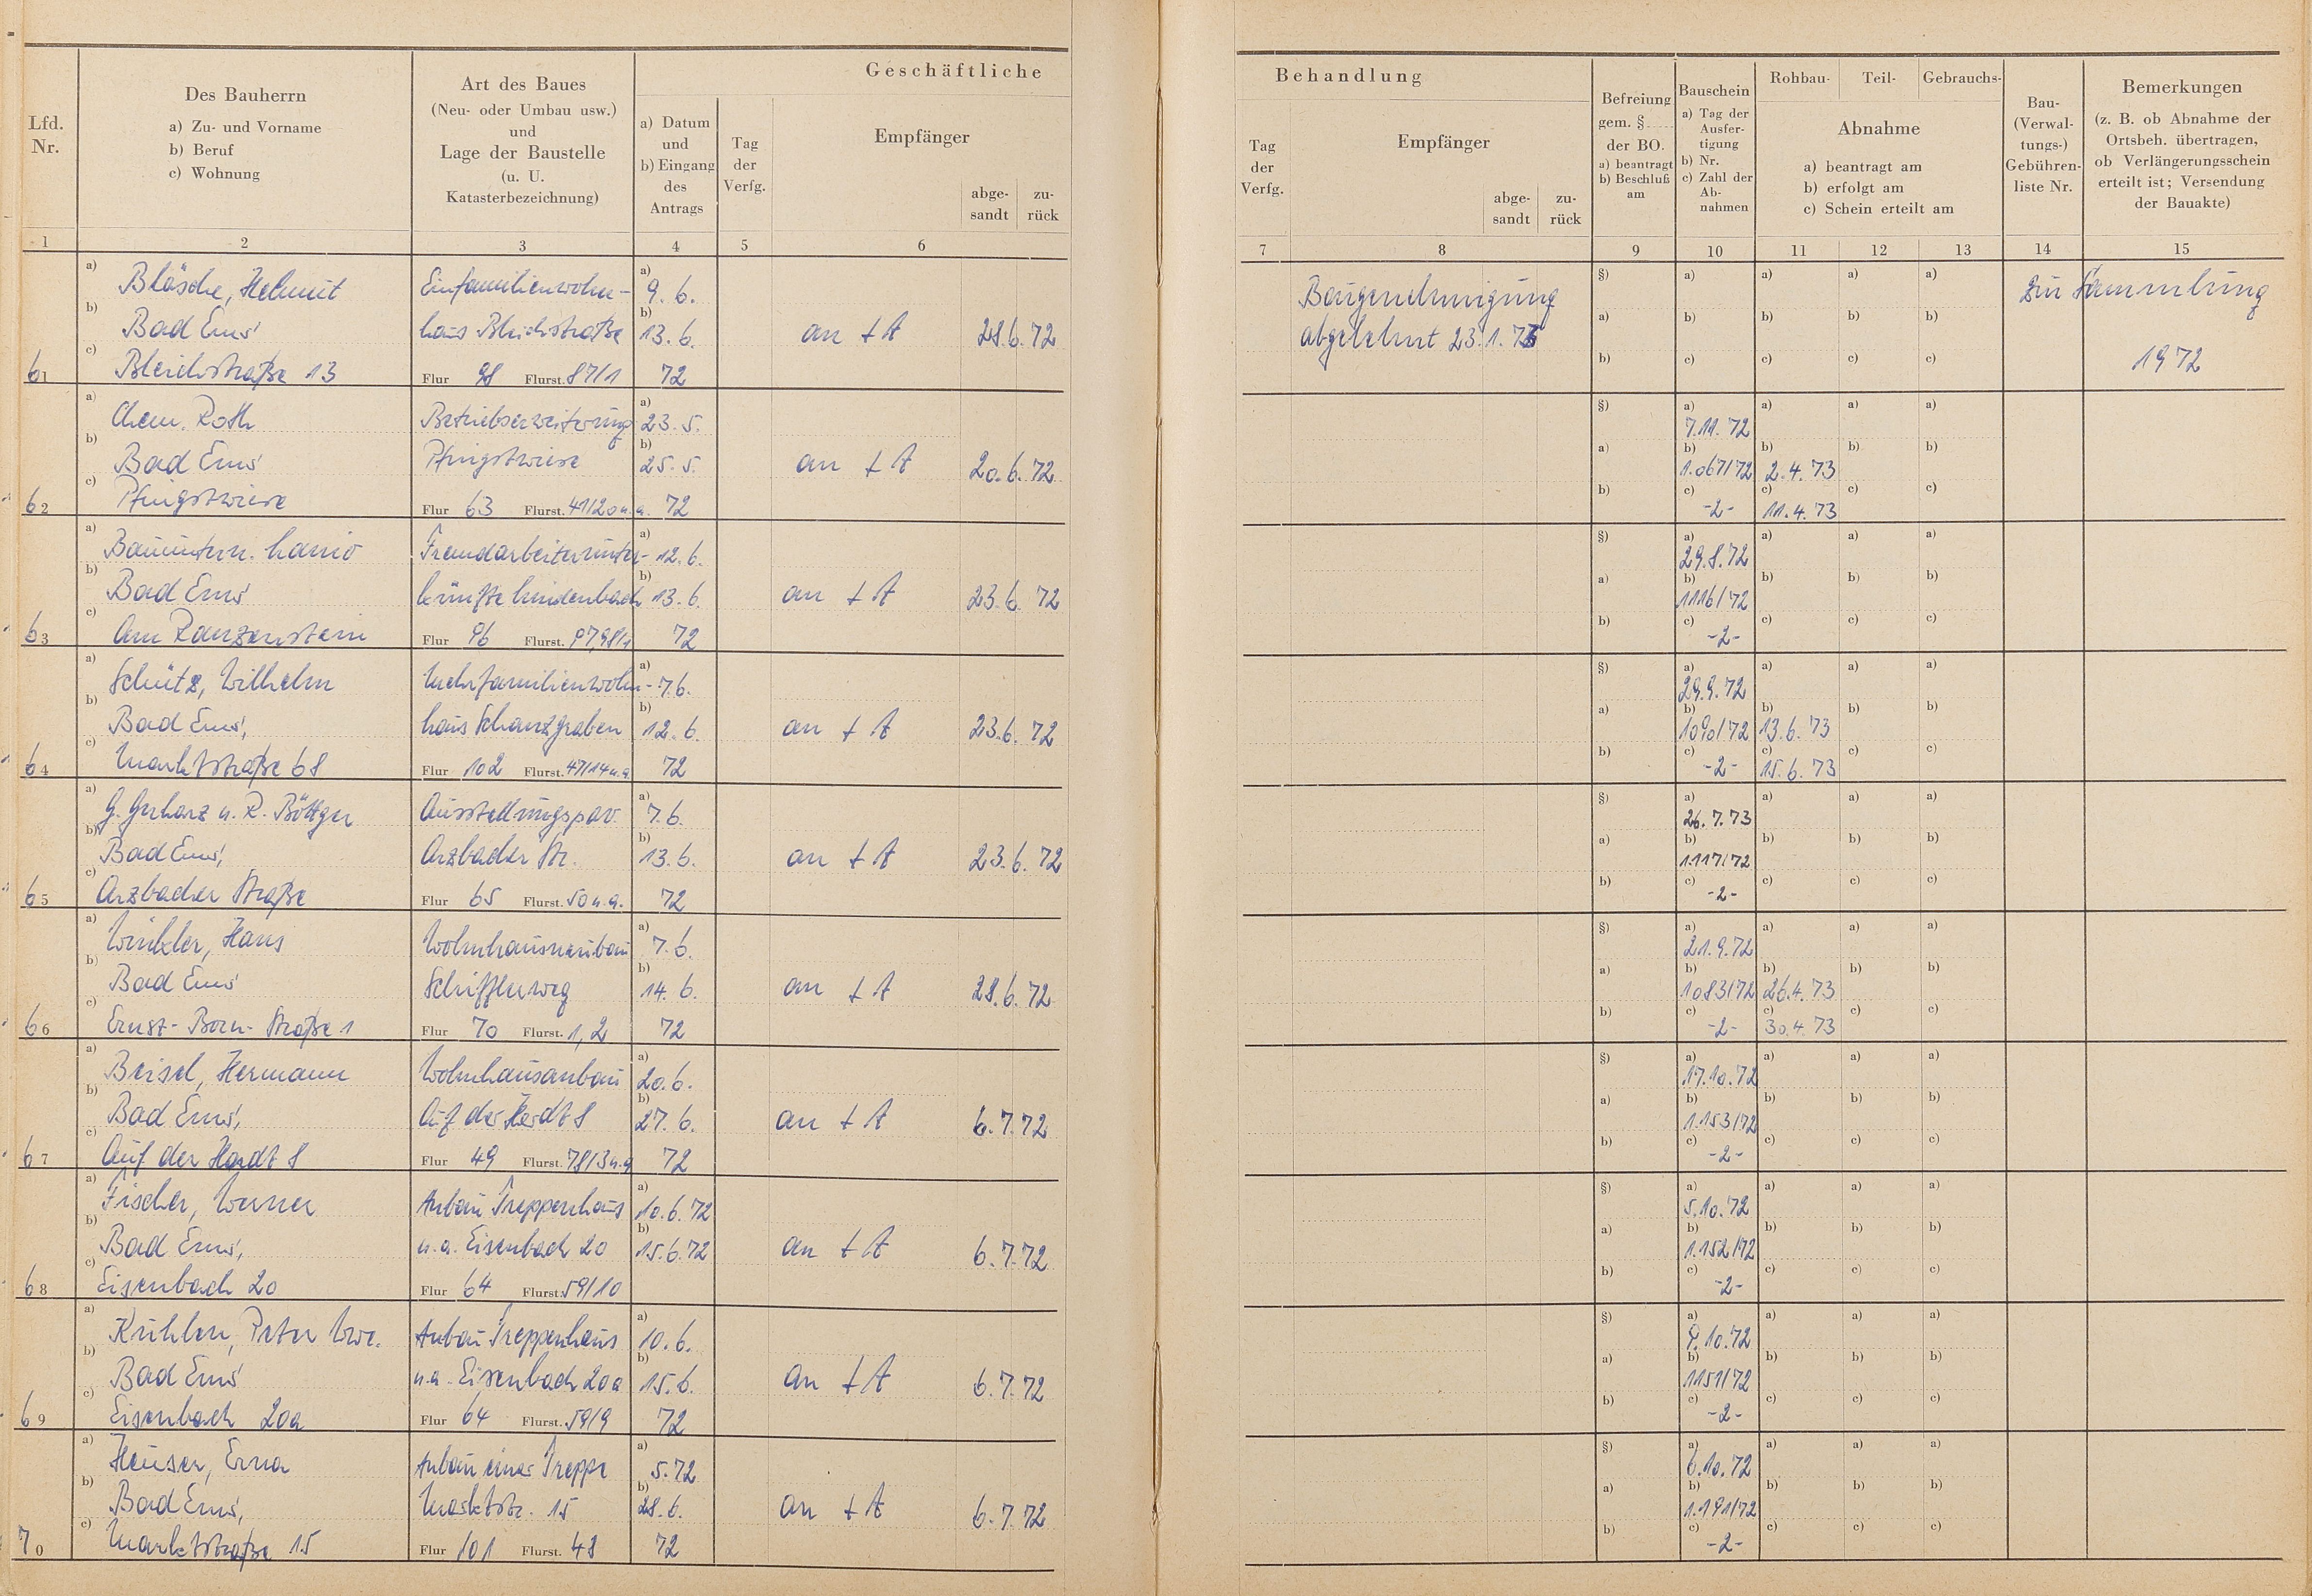 Geschäftliche Behandlung
Lfd. Nr.
Des Bauherrn
a) Zu- und Vorname
b) Beruf
c) Wohnung
Art des Baues
(Neu- oder Umbau usw.)
und
Lage der Baustelle
(u. U.
Katasterbezeichnung)
a) Datum
und
b) Eingang
des
Antrags
Tag
der
Verfg.
Empfänger
abge-
sandt
zu-
rück
Tag
der
Verfg.
Empfänger
abge-
sandt
zu-
rück
Befreiung
gem. §
der BO.
a) beantragt
b) Beschluß
am
Bauschein
a) Tag der
Ausfer-
tigung
b) Nr.
c) Zahl der
Ab-
nahmen
Rohbau- Teil- Gebrauchs-
Abnahme
a) beantragt am
b) erfolgt am
c) Schein erteilt am
Bau-
(Verwal-
tungs-)
Gebühren-
liste Nr.
Bemerkungen
(z. B. ob Abnahme der
Ortsbeh. übertragen,
ob Verlängerungsschein
erteilt ist; Versendung
der Bauakte)
1 2 3 4 5 6 7 8 9 10 11 12 13 14 15
a) Bläsche, Helmut Einfamilienwohn- a) 9.6. Baugenehmigung zur Sammlung
b) Bad Ems haus Bleichstraße b) 13.6. an + A 28.6.72 abgelehnt 23.1.73
61 c) Bleichstraße 13 Flur 98 Flurst. 87/1 72 1972
a) Chem. Roth Betriebserweiterung a) 23.5. a) 7.11.72
b) Bad Ems Pfingstwiese b) 25.5. an + A 20.6.72 b) 1.067/72 b) 2.4.73
62 c) Pfingstwiese Flur 63 Flurst. 41/20 u.a. 72 c) -2- c) 11.4.73
a) Bauuntern. Fremdarbeiterunter- a) 12.6. a) 29.8.72
b) Bad Ems künfte Lindenbach b) 13.6. an + A 23.6.72 b) 1116/72
63 c) Am Ranzenstein Flur 96 Flurst. 97,98/1 72 c) -2-
a) Schütz, Wilhelm Mehrfamilienwohn- a) 7.6. a) 29.9.72
b) Bad Ems, haus Schanzgraben b) 12.6. an + A 23.6.72 b) 1090/72 b) 13.6.73
64 c) Marktstraße 68 Flur 102 Flurst. 47/14 u.a. 72 c) -2- c) 15.6.73
a) G. Gerharz u. R. Böttger Ausstellungspav. a) 7.6. a) 26.7.73
b) Bad Ems, Arzbacher Str. b) 13.6. an + A 23.6.72 b) 1.117/72
65 c) Arzbacher Straße Flur 65 Flurst. 50 u.a. 72 c) -2-
a) Winkler, Hans Wohnhausneubau a) 7.6. a) 21.9.72
b) Bad Ems Schifflerweg b) 14.6. an + A 28.6.72 b) 1083/72 b) 26.4.73
66 c) Ernst-Born-Straße 1 Flur 70 Flurst. 1,2 72 c) -2- c) 30.4.73
a) Beisel, Hermann Wohnhausanbau a) 20.6. a) 17.10.72
b) Bad Ems, Auf der Hardt 8 b) 27.6. an + A 6.7.72 b) 1.153/72
67 c) Auf der Hardt 8 Flur 49 Flurst. 78/3 u.a 72 c) -2-
a) Fischer, Werner Anbau Treppenhaus a) 10.6.72 a) 5.10.72
b) Bad Ems, u.a. Eisenbach 20 b) 15.6.72 an + A 6.7.72 b) 1.152/72
68 c) Eisenbach 20 Flur 64 Flurst. 59/10 c) -2-
a) Kuhlen, Peter Wwe. Anbau Treppenhaus a) 10.6. a) 10.72
b) Bad Ems u.a. Eisenbach 20a b) 15.6. an + A 6.7.72 b) 1151/72
69 c) Eisenbach 20a Flur 64 Flurst. 59/9 72 c) -2-
a) Heuser, Erna Anbau einer Treppe a) 5.72 a) 6.10.72
b) Bad Ems, Marktstr. 15 b) 28.6. an + A 6.7.72 b) 1.191/72
70 c) Marktstraße 15 Flur 101 Flurst. 48 72 c) -2-